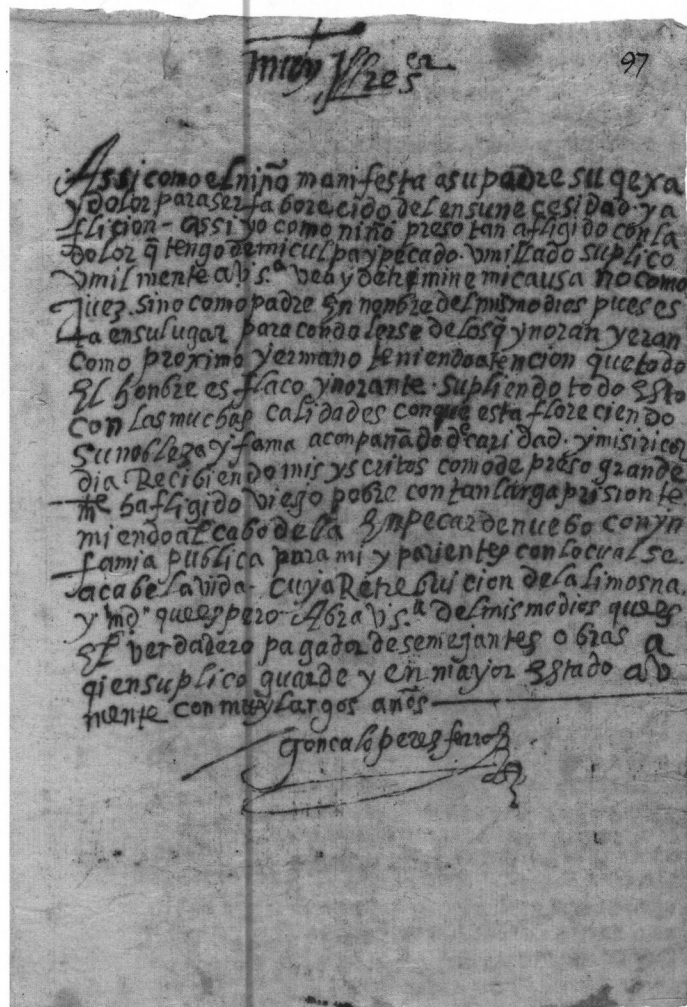 muy Ill͞res ser
97
Assi como el niño manifesta asu padre su qexa
y dolor para ser faborecido del en su necesidad · y a
flicion - assi yo como niño preso tan afligido con la
dolor q̃ tengo de mi culpa y pecado · vmillado suplico
vmilmente a v s.ª vea y determine mi causa no como
Juez · sino como padre En nonbre del mismo dios pues es
ta en su lugar para condolerse de los q̃ ynoran y eran
como proximo y ermano teniendo atencion que todo
El honbre es flaco ynorante · supliendo todo Esto
con las muchas calidades con que esta floreciendo
su nobleza y fama aconpañado de caridad · y misiricor
dia Recibiendo mis yscritos como de preso grande
mẽ afligido viego pobre con tan larga prision te
miendo al cabo de la Enpecar de nuebo con yn
famia publica para mi y parientes con lo cual se
acabe la vida - cuya Retrebuicion de la limosna
y md̃ que espero - Abra v s.ª del mismo dios que es
El verdadero pagador de semegantes obras a
qien suplico guarde y en mayor Estado au
mente con muy largos años
Goncalo peres ferro